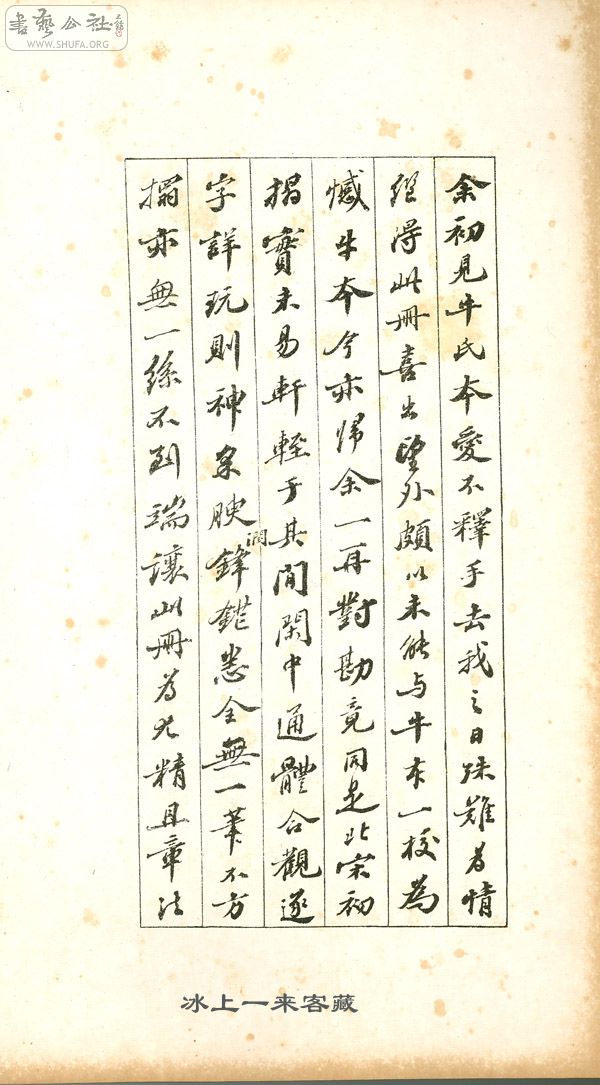 書藝公社
WWW.SHUFA.ORG
余初見牛氏本愛不釋手去我之日殊難為情
繼得此冊喜出望外頗以未能与牛本一校為
憾牛本今亦歸余一再對勘竟同是北宋初
搨實未易軒輊于其間閑中通體合觀逐
字詳玩則神采腴潤鋒鋩悉全無一筆不方
搨亦無一絲不到端讓此冊為尤精且章法
冰上一来客藏